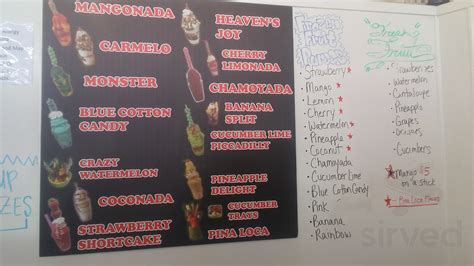 MANGONADA
CARMELO
MONSTER
BLUE COTTON
CANDY
CRAZY
WATERMELON
COCONADA
STRAWBERRY
SHORTCAKE
HEAVEN'S
JOY
CHERRY
LIMONADA
CHAMOYADA
BANANA
SPLIT
CUCUMBER LIME
PICCADILLY
PINEAPPLE
DELIGHT
CUCUMBER
TRAYS
PINA LOCA
Strawberry
Mango
Lemon
Cherry
Watermelon
Pineapple
Coconut
Chamoyada
Cucumber Lime
Blue Cotton Candy
Pink
Banana
Rainbow
Fresh
Fruit
Strawberries
Watermelon
Cantaloupe
Pineapple
Grapes
Cucumbers
Mango $5
on a stick
- Pina Loca
sirved